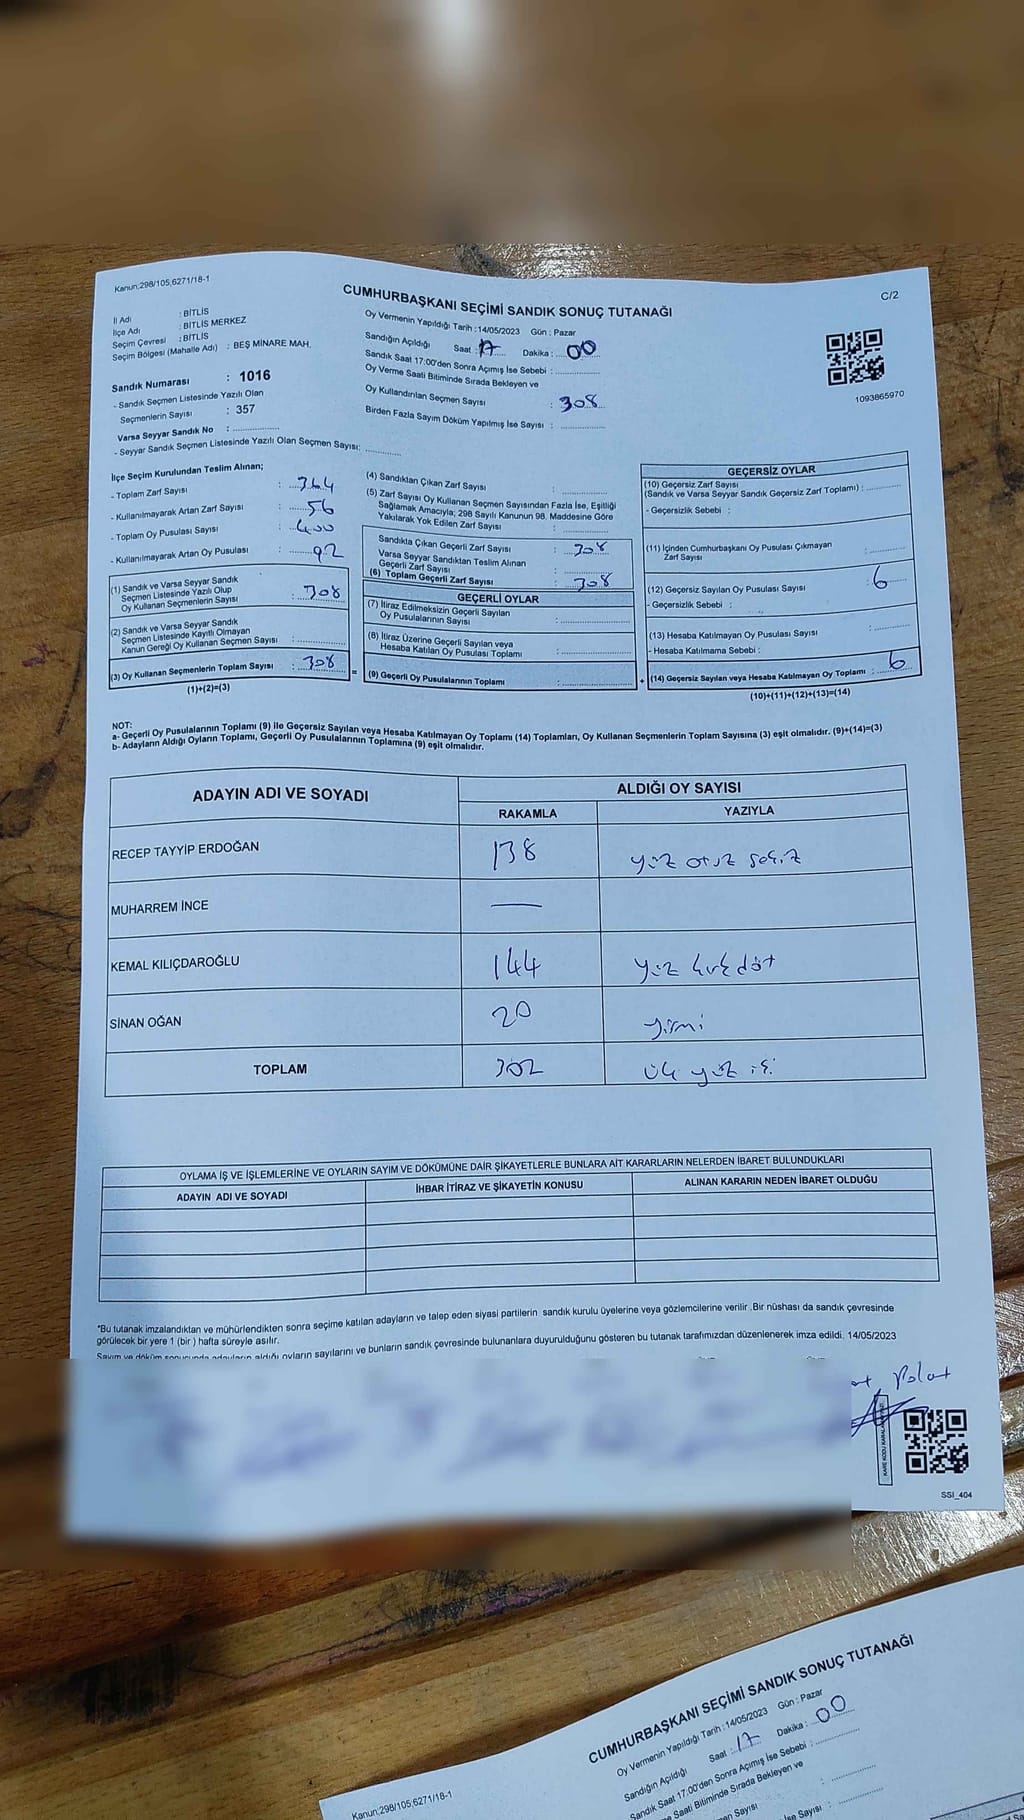 Kanun;298/105;6271/18-1
C/2
CUMHURBAŞKANI SEÇİMİ SANDIK SONUÇ TUTANAĞI
İl Adı : BİTLİS
İlçe Adı : BİTLİS MERKEZ
Seçim Çevresi : BİTLİS
Seçim Bölgesi (Mahalle Adı) : BEŞ MİNARE MAH.
Sandık Numarası : 1016
- Sandık Seçmen Listesinde Yazılı Olan
Seçmenlerin Sayısı : 357
Varsa Seyyar Sandık No :
- Seyyar Sandık Seçmen Listesinde Yazılı Olan Seçmen Sayısı:
Oy Vermenin Yapıldığı Tarih : 14/05/2023 Gün : Pazar
Sandığın Açıldığı Saat : 17 Dakika : 00
Sandık Saat 17:00'den Sonra Açımış İse Sebebi :
Oy Verme Saati Bitiminde Sırada Bekleyen ve
Oy Kullandırılan Seçmen Sayısı : 308
Birden Fazla Sayım Döküm Yapılmış İse Sayısı :
1093865970
İlçe Seçim Kurulundan Teslim Alınan;
- Toplam Zarf Sayısı : 364
- Kullanılmayarak Artan Zarf Sayısı : 56
- Toplam Oy Pusulası Sayısı : 400
- Kullanılmayarak Artan Oy Pusulası : 92
(1) Sandık ve Varsa Seyyar Sandık
Seçmen Listesinde Yazılı Olup
Oy Kullanan Seçmenlerin Sayısı : 308
(2) Sandık ve Varsa Seyyar Sandık
Seçmen Listesinde Kayıtlı Olmayan
Kanun Gereği Oy Kullanan Seçmen Sayısı :
(3) Oy Kullanan Seçmenlerin Toplam Sayısı : 308
(1)+(2)=(3)
(4) Sandıktan Çıkan Zarf Sayısı :
(5) Zarf Sayısı Oy Kullanan Seçmen Sayısından Fazla İse, Eşitliği
Sağlamak Amacıyla; 298 Sayılı Kanunun 98. Maddesine Göre
Yakılarak Yok Edilen Zarf Sayısı :
Sandıkta Çıkan Geçerli Zarf Sayısı : 308
Varsa Seyyar Sandıktan Teslim Alınan
Geçerli Zarf Sayısı :
(6) Toplam Geçerli Zarf Sayısı : 308
GEÇERLİ OYLAR
(7) İtiraz Edilmeksizin Geçerli Sayılan
Oy Pusulalarının Sayısı :
(8) İtiraz Üzerine Geçerli Sayılan veya
Hesaba Katılan Oy Pusulası Toplamı :
= (9) Geçerli Oy Pusulalarının Toplamı :
GEÇERSİZ OYLAR
(10) Geçersiz Zarf Sayısı
(Sandık ve Varsa Seyyar Sandık Geçersiz Zarf Toplamı) :
- Geçersizlik Sebebi :
(11) İçinden Cumhurbaşkanı Oy Pusulası Çıkmayan
Zarf Sayısı :
(12) Geçersiz Sayılan Oy Pusulası Sayısı : 6
- Geçersizlik Sebebi :
(13) Hesaba Katılmayan Oy Pusulası Sayısı :
- Hesaba Katılmama Sebebi :
+ (14) Geçersiz Sayılan veya Hesaba Katılmayan Oy Toplamı : 6
(10)+(11)+(12)+(13)=(14)
NOT:
a- Geçerli Oy Pusulalarının Toplamı (9) ile Geçersiz Sayılan veya Hesaba Katılmayan Oy Toplamı (14) Toplamları, Oy Kullanan Seçmenlerin Toplam Sayısına (3) eşit olmalıdır. (9)+(14)=(3)
b- Adayların Aldığı Oyların Toplamı, Geçerli Oy Pusulalarının Toplamına (9) eşit olmalıdır.
ADAYIN ADI VE SOYADI
ALDIĞI OY SAYISI
RAKAMLA YAZIYLA
RECEP TAYYİP ERDOĞAN 138 yüz otuz sekiz
MUHARREM İNCE —
KEMAL KILIÇDAROĞLU 144 yüz kırk dört
SİNAN OĞAN 20 yirmi
TOPLAM 302 üç yüz iki
OYLAMA İŞ VE İŞLEMLERİNE VE OYLARIN SAYIM VE DÖKÜMÜNE DAİR ŞİKAYETLERLE BUNLARA AİT KARARLARIN NELERDEN İBARET BULUNDUKLARI
ADAYIN ADI VE SOYADI İHBAR İTİRAZ VE ŞİKAYETİN KONUSU ALINAN KARARIN NEDEN İBARET OLDUĞU
*Bu tutanak imzalandıktan ve mühürlendikten sonra seçime katılan adayların ve talep eden siyasi partilerin sandık kurulu üyelerine veya gözlemcilerine verilir .Bir nüshası da sandık çevresinde
görülecek bir yere 1 (bir ) hafta süreyle asılır.
Sayım ve döküm sonucunda adayların aldığı oyların sayılarını ve bunların sandık çevresinde bulunanlara duyurulduğunu gösteren bu tutanak tarafımızdan düzenlenerek imza edildi. 14/05/2023
Polat
SSI_404
CUMHURBAŞKANI SEÇİMİ SANDIK SONUÇ TUTANAĞI
Oy Vermenin Yapıldığı Tarih : 14/05/2023 Gün : Pazar
Sandığın Açıldığı Saat : 17 Dakika : 00
Sandık Saat 17:00'den Sonra Açımış İse Sebebi :
Saati Bitiminde Sırada Bekleyen ve
Seçmen Sayısı :
İse Sayısı :
Kanun;298/105;6271/18-1